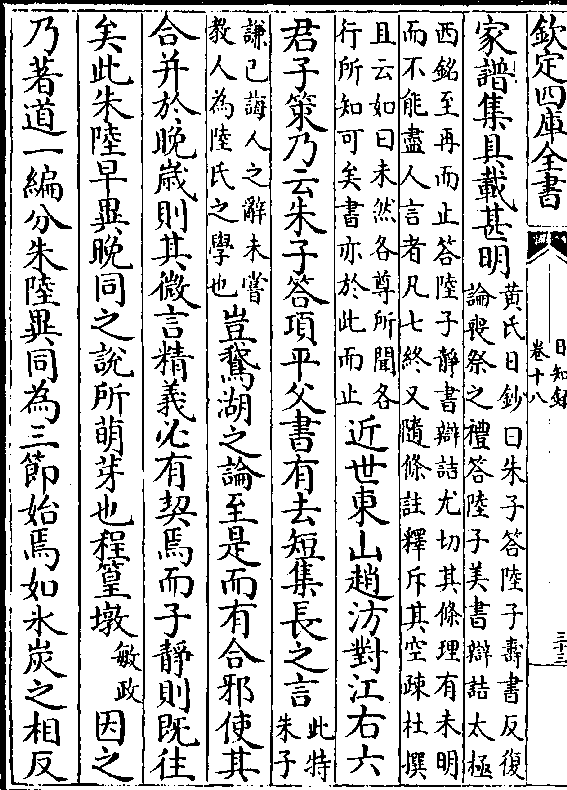 欽定四庫全書
日知錄
卷十八
三十三
家譜集具載甚明
黃氏日鈔曰朱子答陸子壽書反復
論喪祭之禮答陸子美書辯詰太極
西銘至再而止答陸子靜書辯詰尤切其條理有未明
而不能盡人言者凡七終又隨條註釋斥其空疎杜撰
且云如曰未然各尊所聞各
行所知可矣書亦於此而止
近世東山趙汸對江右六
君子策乃云朱子答項平父書有去短集長之言
此特
朱子
謙己誨人之辭未嘗
教人為陸氏之學也
豈鵞湖之論至是而有合邪使其
合并於晚歲則其微言精義必有契焉而子靜則既往
矣此朱陸早異晚同之說所萌芽也程篁墩
敏政
因之
乃著道一編分朱陸異同為三節始焉如氷炭之相反